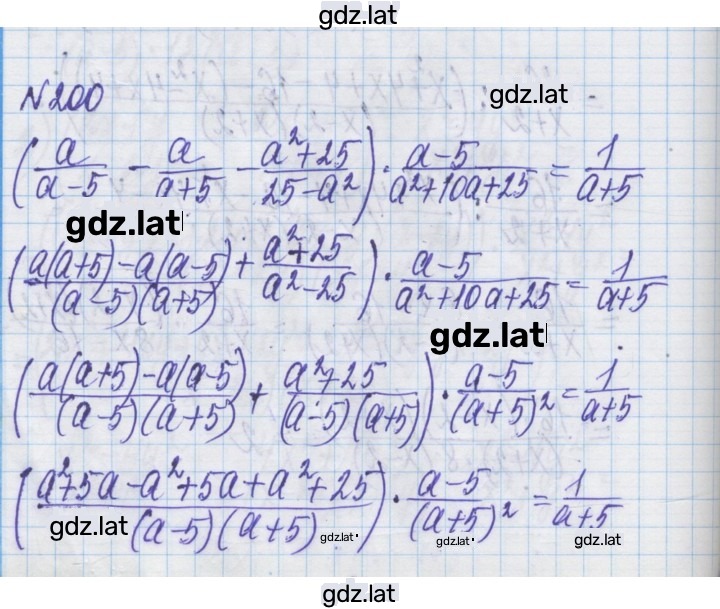 gdz.lat
N 200
gdz.lat
(a/(a-5) - a/(a+5) - (a²+25)/(25-a²)) · (a-5)/(a²+10a+25) = 1/(a+5)
gdz.lat
((a(a+5)-a(a-5))/((a-5)(a+5)) + (a²+25)/(a²-25)) · (a-5)/(a²+10a+25) = 1/(a+5)
gdz.lat
((a(a+5)-a(a-5))/((a-5)(a+5)) + (a²+25)/((a-5)(a+5))) · (a-5)/(a+5)² = 1/(a+5)
((a²+5a-a²+5a+a²+25)/((a-5)(a+5))) · (a-5)/(a+5)² = 1/(a+5)
gdz.lat gdz.lat gdz.lat gdz.lat
gdz.lat